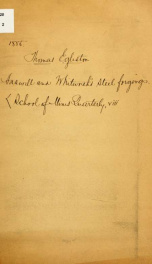 1885.
Thomas Egleston
and Whitworth's steel forgings.
(School of Mines Quarterly, v.